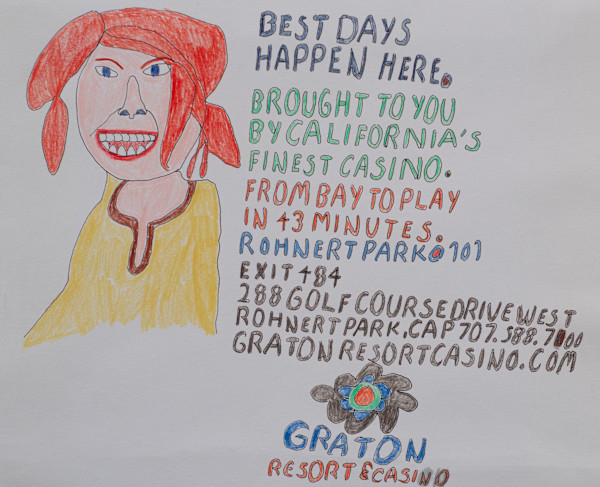 BEST DAYS
HAPPEN HERE.
BROUGHT TO YOU
BY CALIFORNIA'S
FINEST CASINO.
FROM BAY TO PLAY
IN 43 MINUTES.
ROHNERT PARK@101
EXIT 484
288 GOLF COURSE DRIVE WEST
ROHNERT PARK, CA P 707.588.7100
GRATONRESORTCASINO.COM
GRATON
RESORT & CASINO